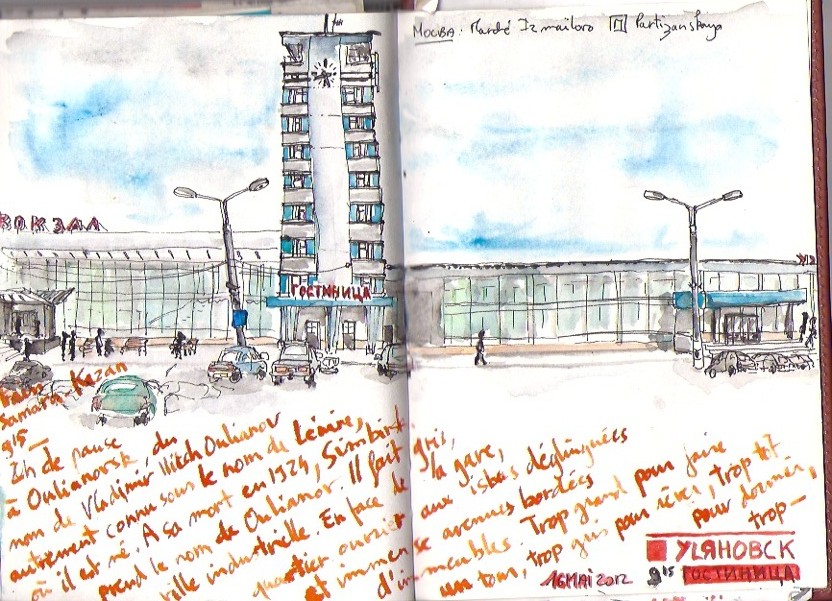 Москва. Marché Izmailovo M Partizanskaya
ВОКЗАЛ
ГОСТИНИЦА
Samara - Kazan
9h15 —
2h de pause
à Oulianovsk, du
nom de Vladimir Ilitch Oulianov
autrement connu sous le nom de Lénine,
où il est né. A sa mort en 1924, Simbirsk
prend le nom de Oulianov. Il fait gris,
ville industrielle. En face de la gare,
quartier ouvrier aux isbas déglinguées
et immenses avenues bordées
d'immeubles. Trop grand pour faire
un tour, trop gris pour rêver, trop tôt
pour dormir,
trop —
16 MAI 2012
УЛЯНОВСК
9h15 ГОСТИНИЦА